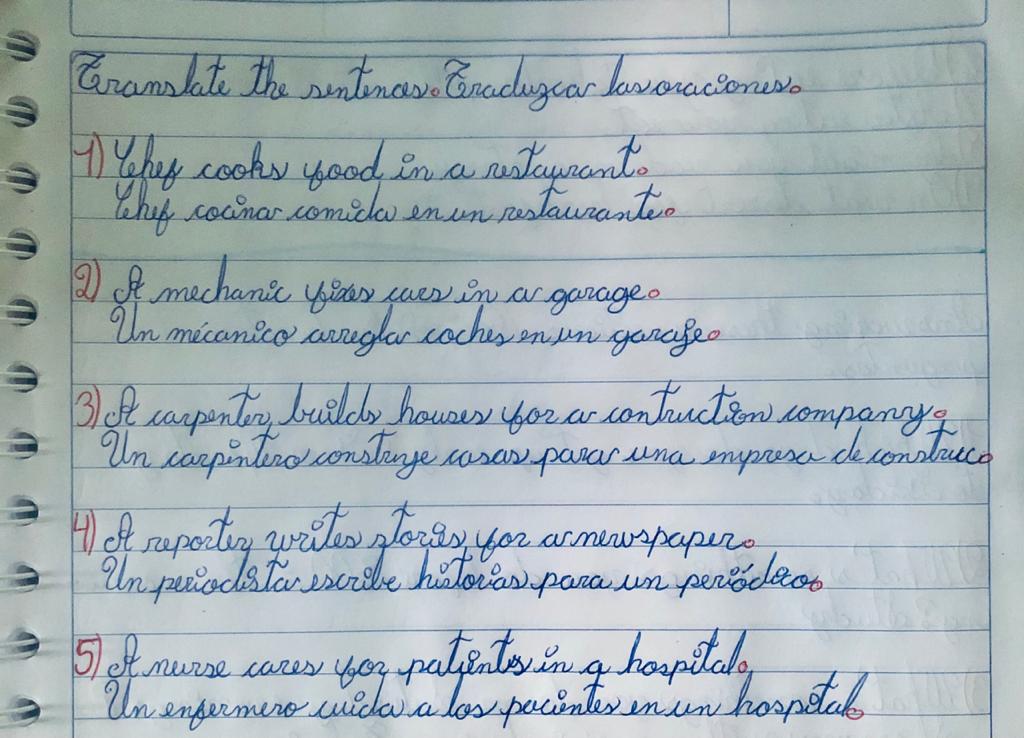 Translate the sentences. Traduzca las oraciones.
1) Chef cooks food in a restaurant.
Chef cocina comida en un restaurante.
2) A mechanic fixes cars in a garage.
Un mécanico arregla coches en un garaje.
3) A carpenter builds houses for a contruction company.
Un carpintero construye casas para una empresa de construcc
4) A reporter writes stories for a newspaper.
Un periodista escribe historias para un periódico.
5) A nurse cares for patients in a hospital.
Un enfermero cuida a los pacientes en un hospital.